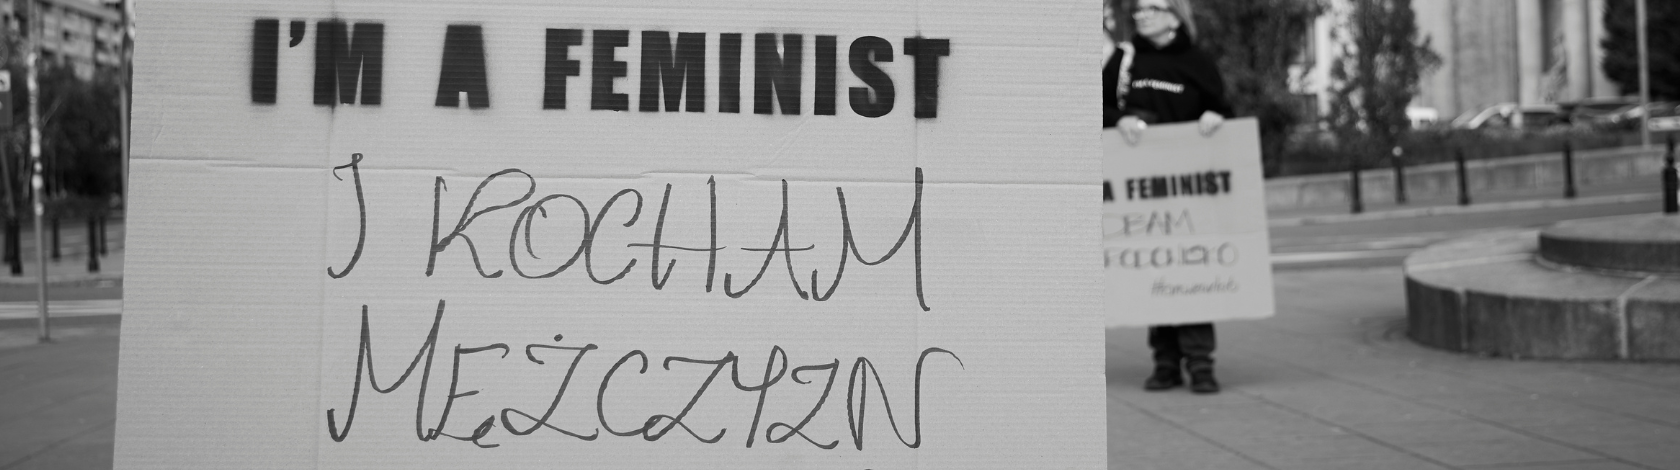 I'M A FEMINIST
I KOCHAM
MĘŻCZYZN
A FEMINIST
DBAM